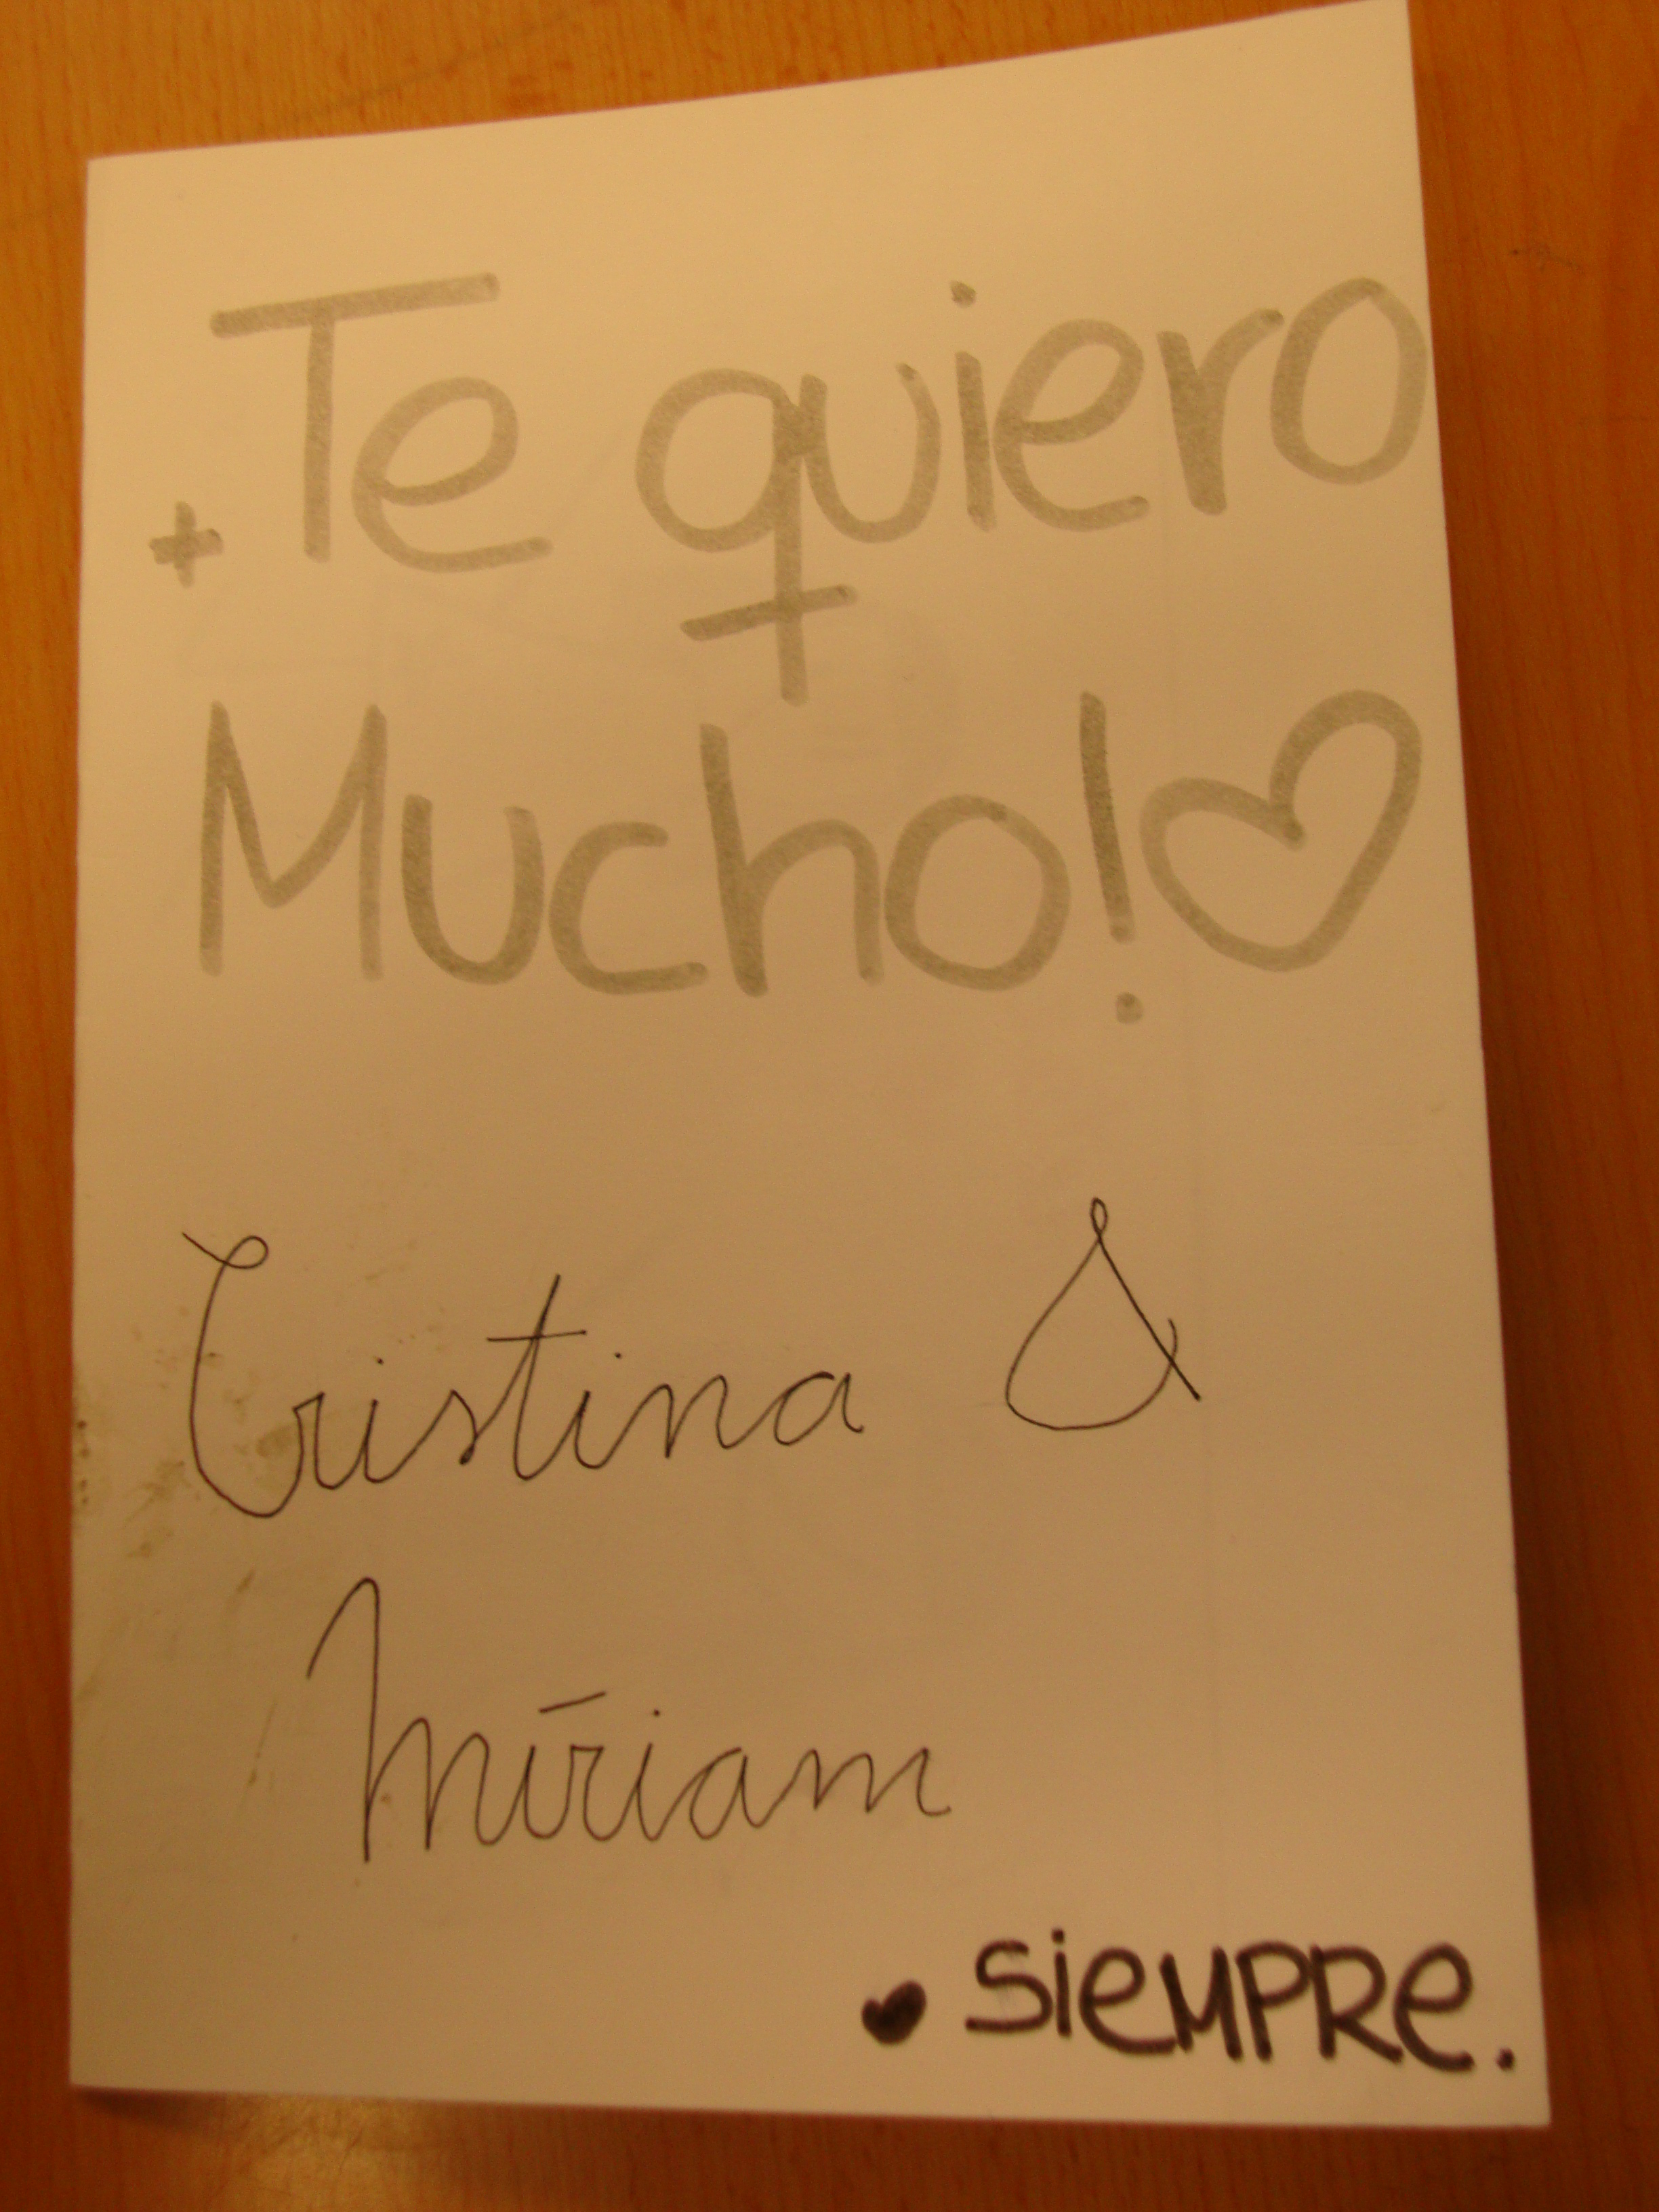 + Te quiero
Mucho! ♡
Cristina &
Míriam
♥ SieMPRe.